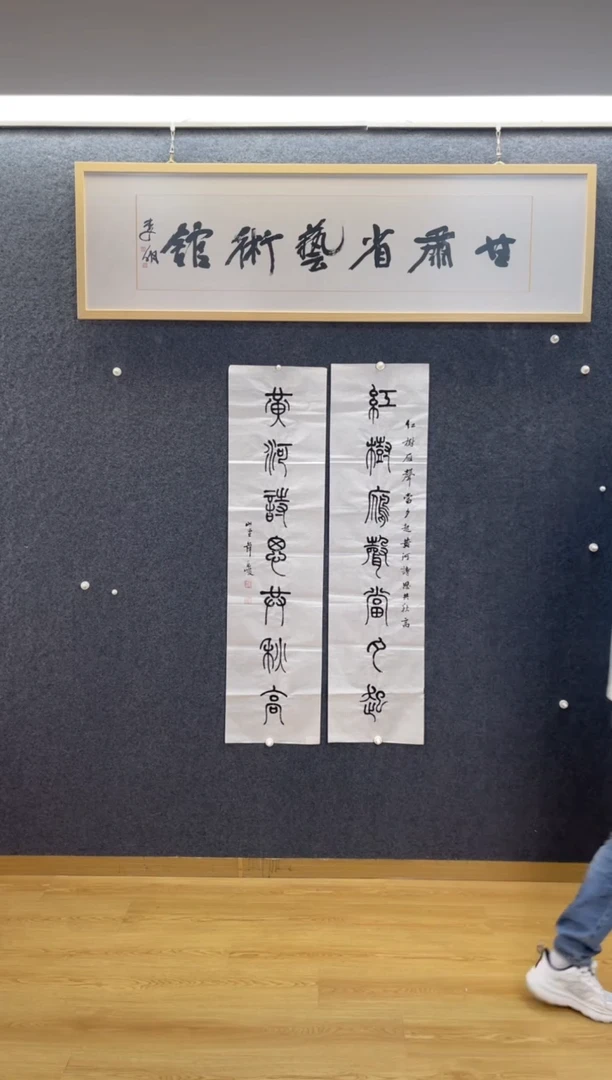 甘肅省藝術館
紅樹鴈聲當夕起
紅樹雁聲當夕起黃河詩思共秋高
黃河詩思共秋高